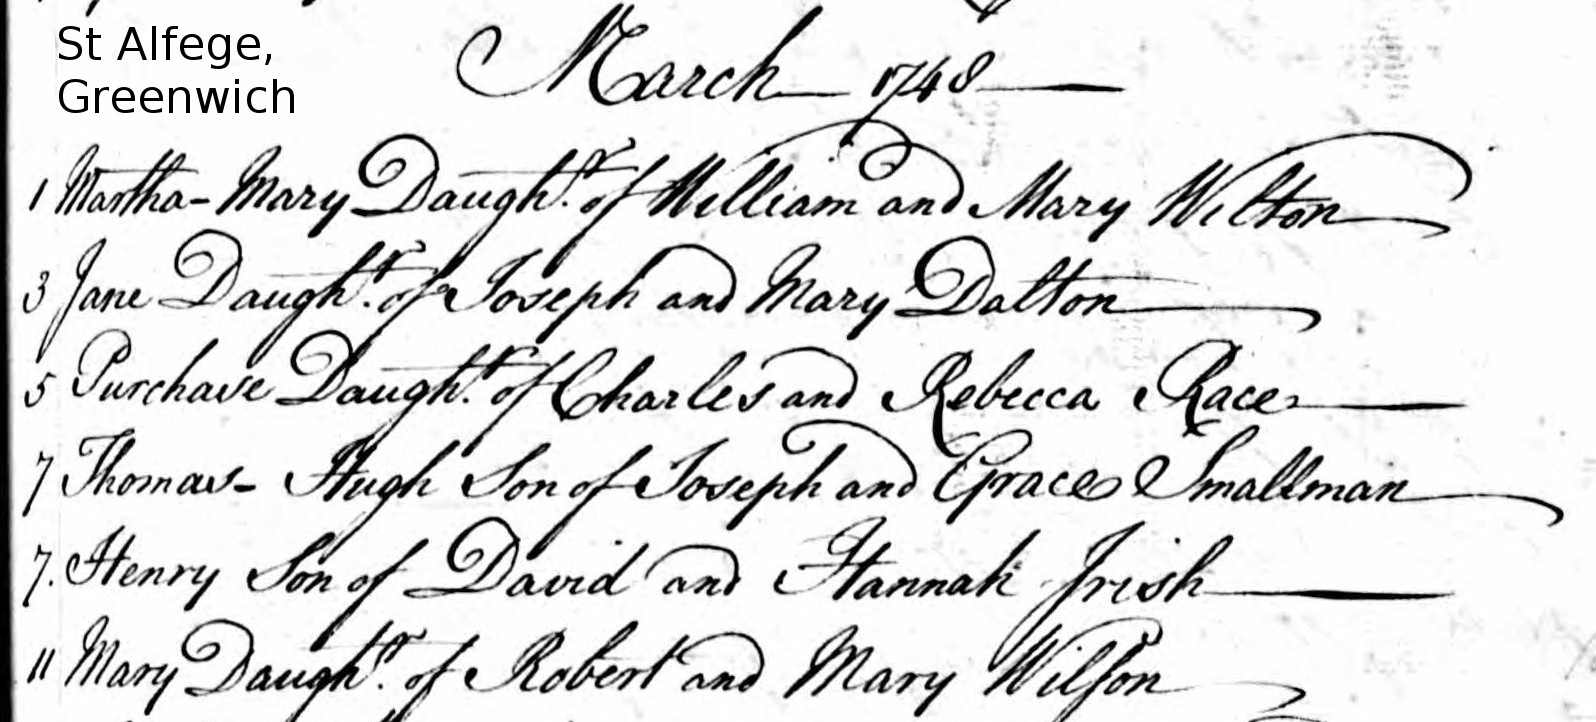 St Alfege,
Greenwich
March 1748
1 Martha-Mary Daughtr. of William and Mary Wilton
3 Jane Daughtr. of Joseph and Mary Dalton
5 Purchase Daughtr. of Charles and Rebecca Race
7 Thomas- Hugh Son of Joseph and Grace Smallman
7. Henry Son of David and Hannah Irish
11 Mary Daughtr. of Robert and Mary Wilſon